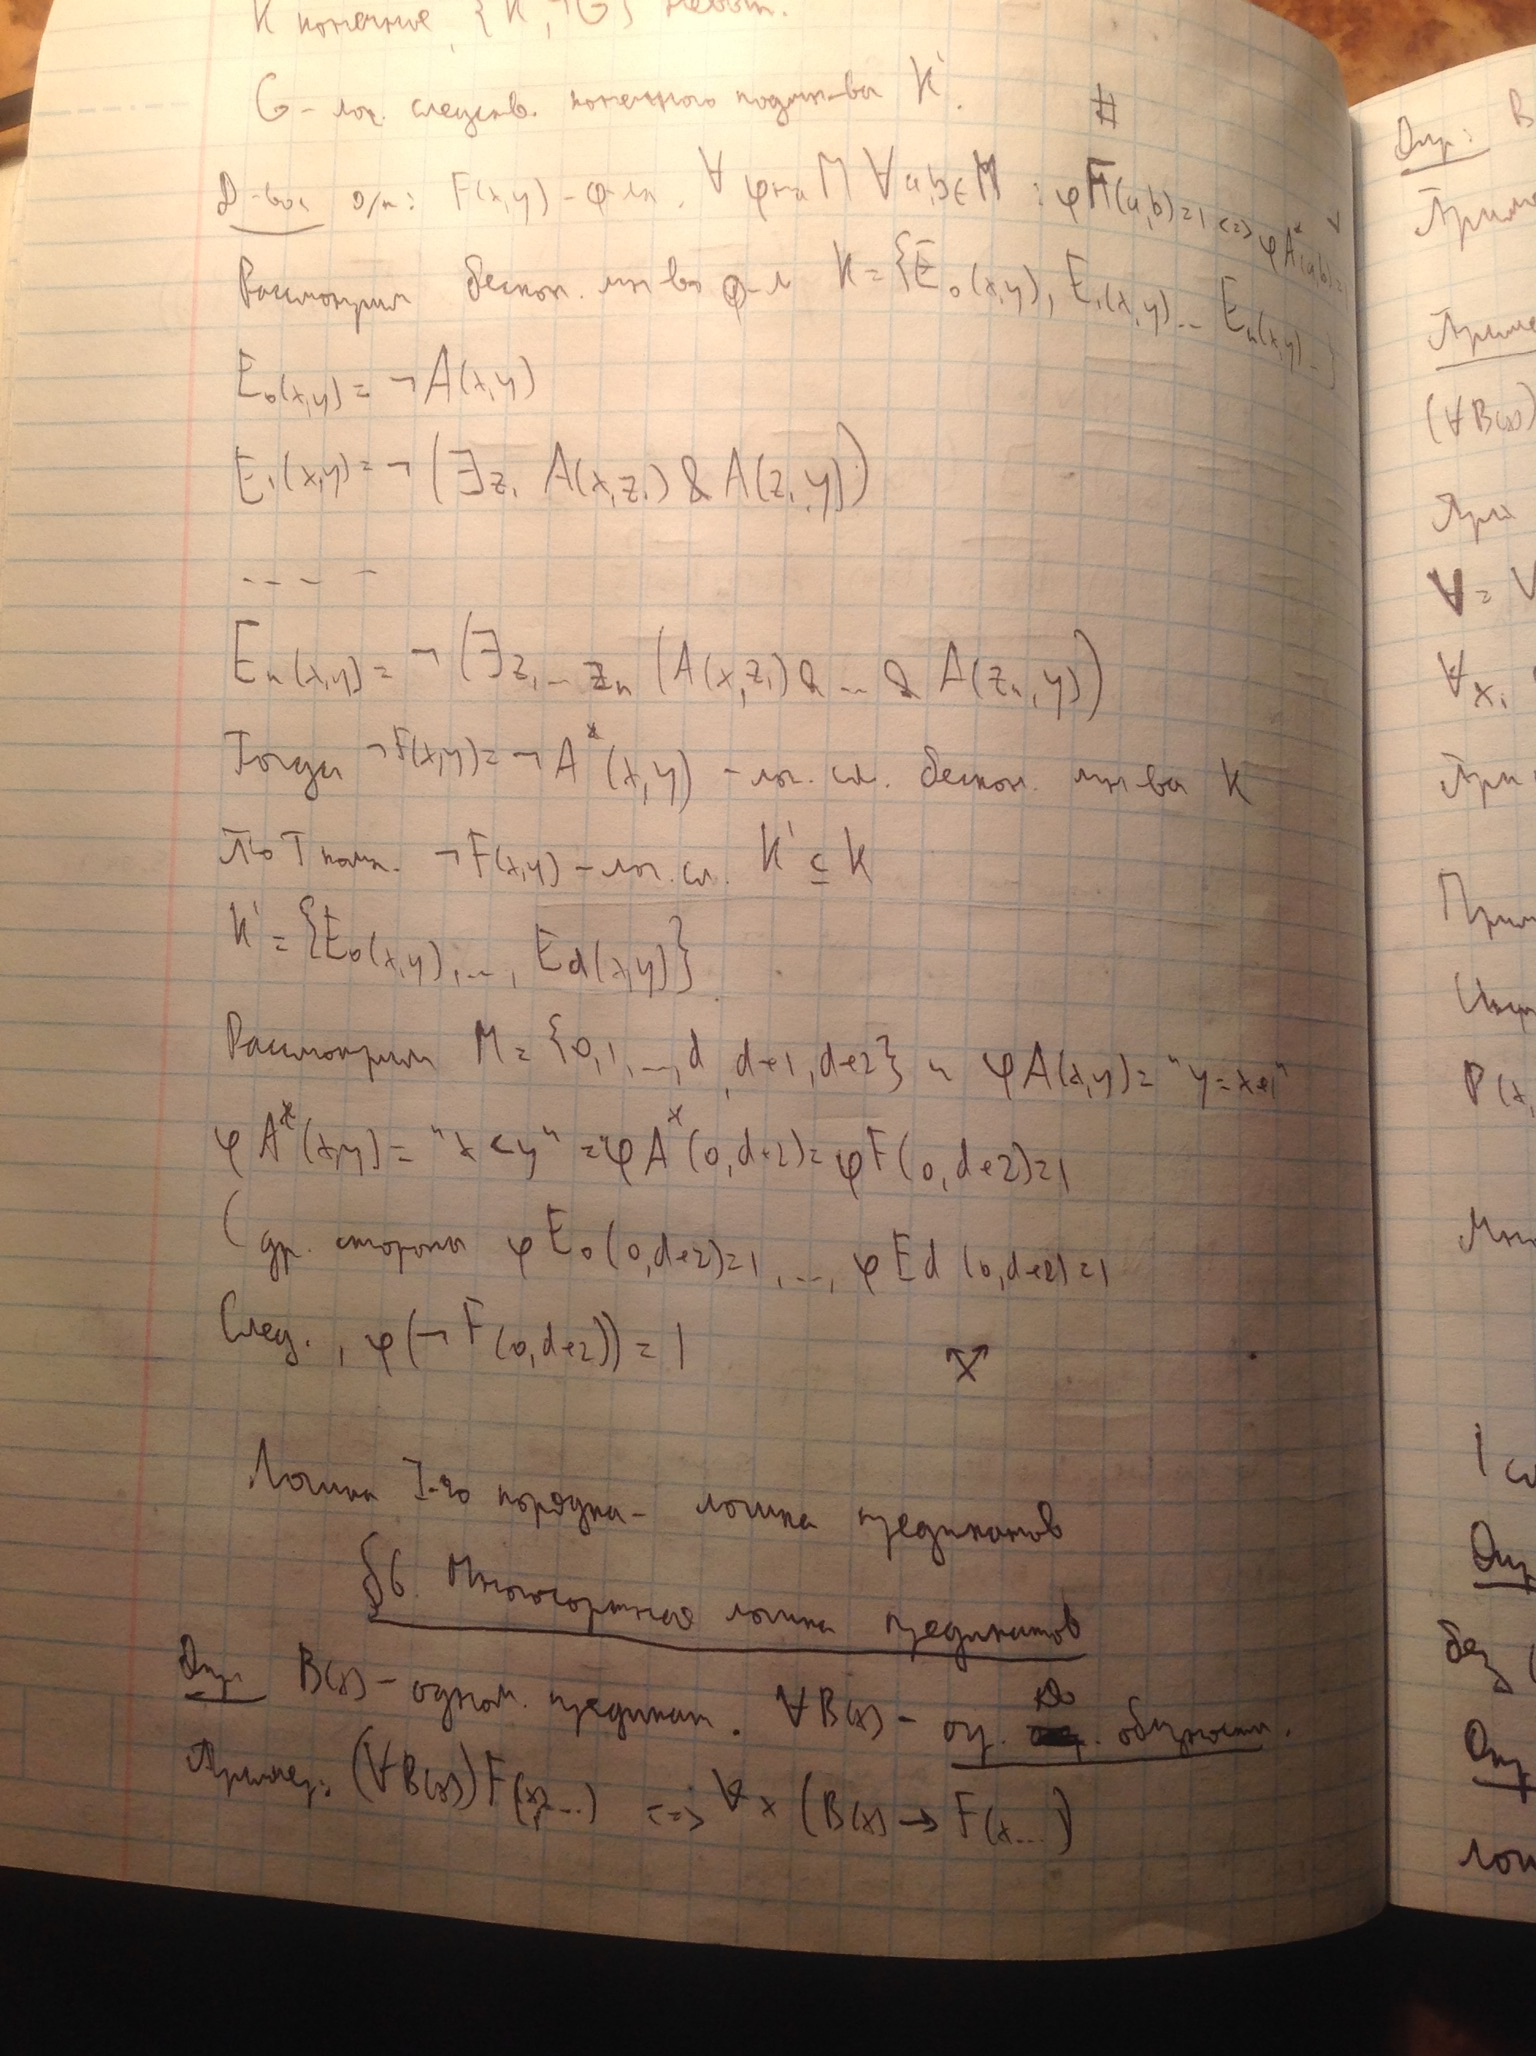 K конечное, {K', ¬G} невып.
G - лог. следств. конечного подмн-ва K'. #
Д-во о/п: F(x,y) - ф-ла. ∀ φ на M ∀ a,b ∈ M : φF(a,b)=1 <=> φA*(a,b)=1
Рассмотрим бескон. мн-во ф-л K = {E₀(x,y), E₁(x,y) ... Eₙ(x,y) .. }
E₀(x,y) = ¬A(x,y)
E₁(x,y) = ¬(∃z₁ A(x,z₁) & A(z₁,y))
- - - -
Eₙ(x,y) = ¬(∃z₁...zₙ (A(x,z₁) & ... & A(zₙ,y))
Тогда ¬F(x,y) = ¬A*(x,y) - лог. сл. бескон. мн-ва K
По Т комп. ¬F(x,y) - лог. сл. K' ⊆ K
K' = {E₀(x,y), ..., Ed(x,y)}
Рассмотрим M = {0,1,...,d, d+1, d+2} и φA(x,y) = "y=x+1"
φA*(x,y) = "x<y" = φA*(0,d+2) = φF(0,d+2)=1
С др. стороны φE₀(0,d+2)=1, ..., φEd(0,d+2)=1
След., φ(¬F(0,d+2)) = 1
Логика I-го порядка - логика предикатов
§6. Многосортная логика предикатов
Опр B(x) - одном. предикат. ∀B(x) - ог. общности.
Пример: (∀B(x))F(x,...) <=> ∀x (B(x) → F(x...)
Опр: В
Приме
Приме
(∀B(x))
При
∀ = ∀
∀x₁
При
Прим
P(x,
Мно
1 сл
Опр
без (
Опр
лог